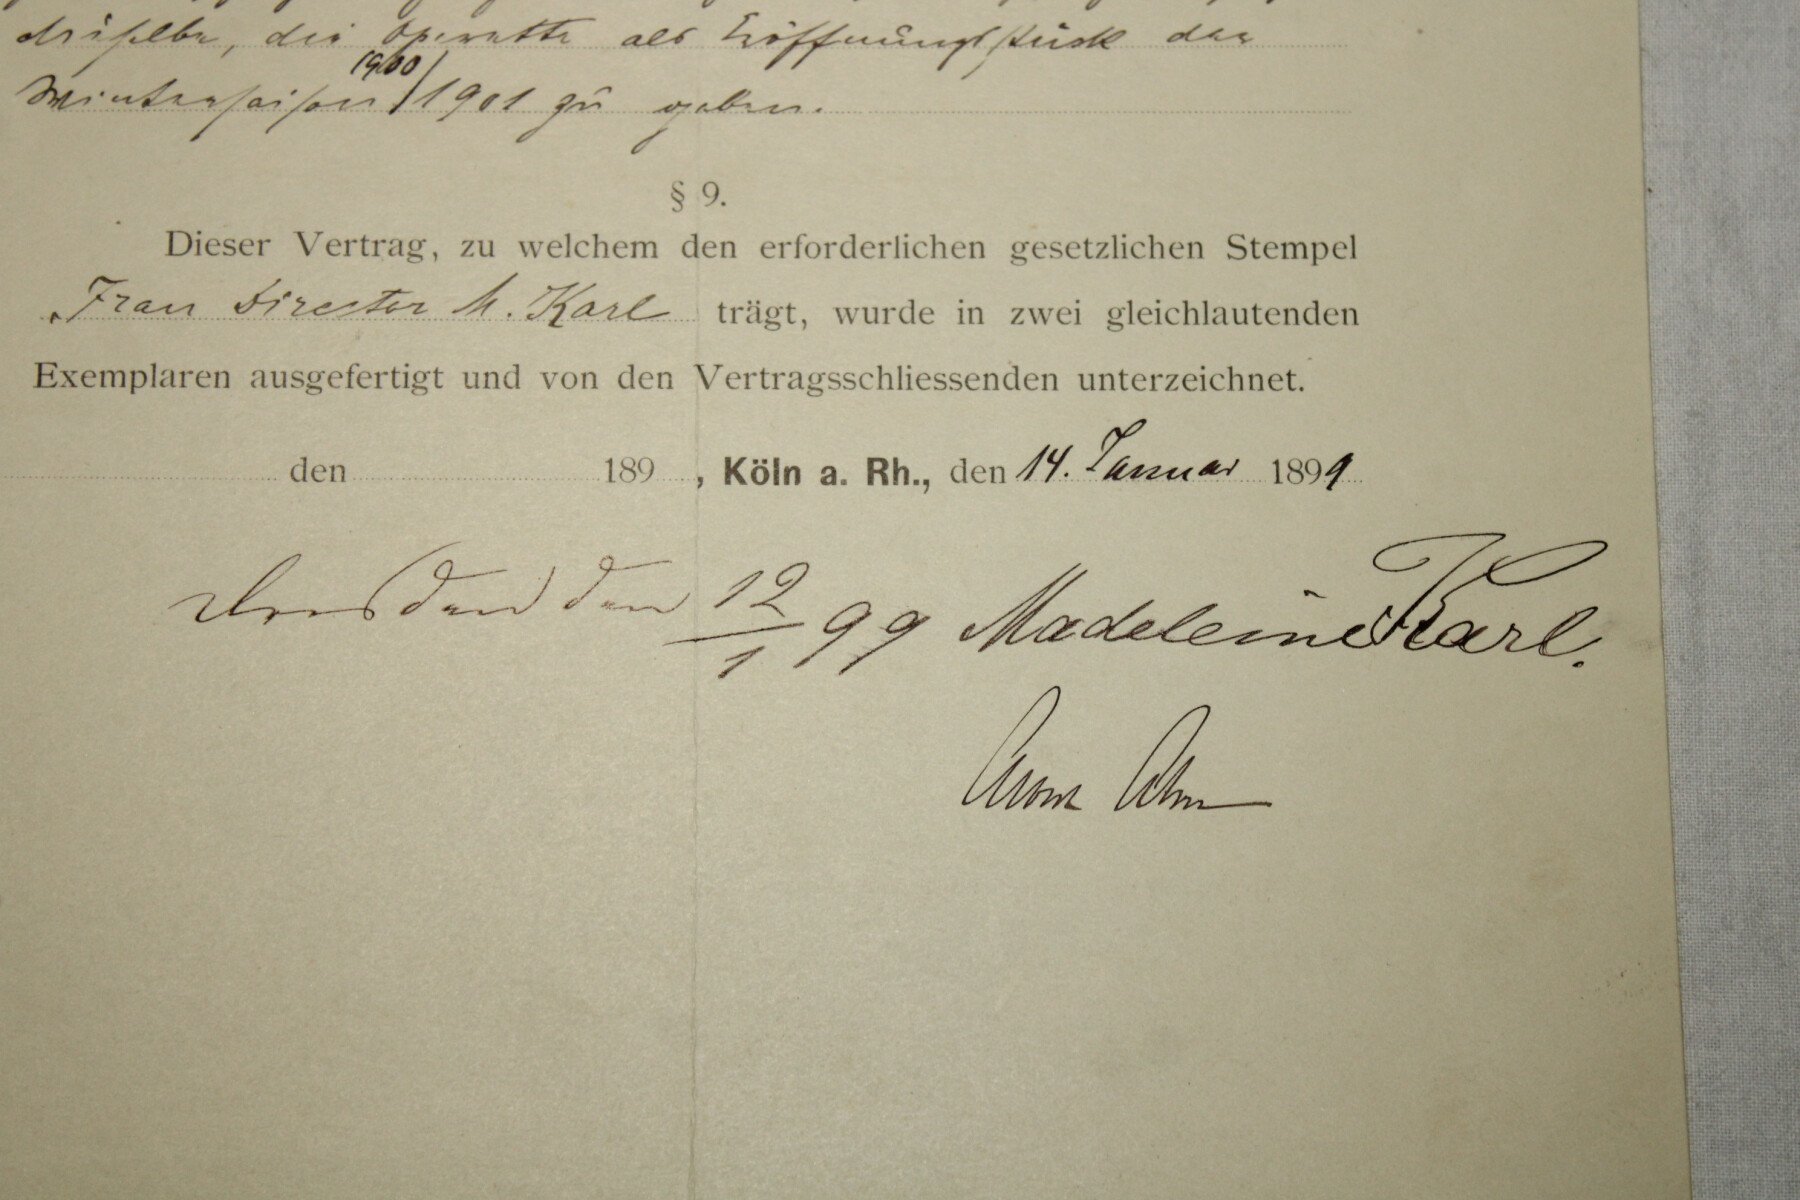 dieselbe, die Operette als Eröffnungsstück der
1900
Wintersaison /1901 zu geben.
§ 9.
Dieser Vertrag, zu welchem den erforderlichen gesetzlichen Stempel
Frau Director M. Karl trägt, wurde in zwei gleichlautenden
Exemplaren ausgefertigt und von den Vertragsschliessenden unterzeichnet.
den 189 , Köln a. Rh., den 14. Januar 1899
Dresden den 12/1 99 Madeleine Karl.